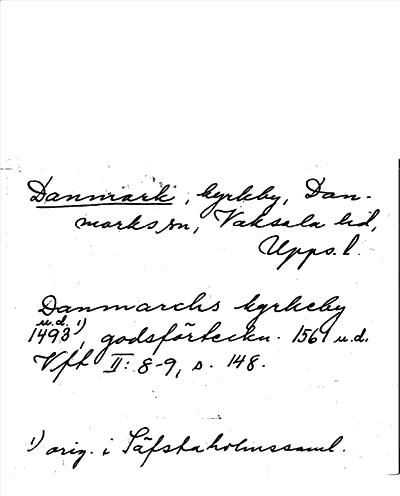 Danmark, kyrkby, Dan-
marks sn, Vaksala hd,
Upps. l.
Danmarchs kyrkeby
u.d.
1493 1), godsförteckn. 1561 u.d.
Vft II: 8-9, s. 148.
1) orig. i Säfstaholmssaml.